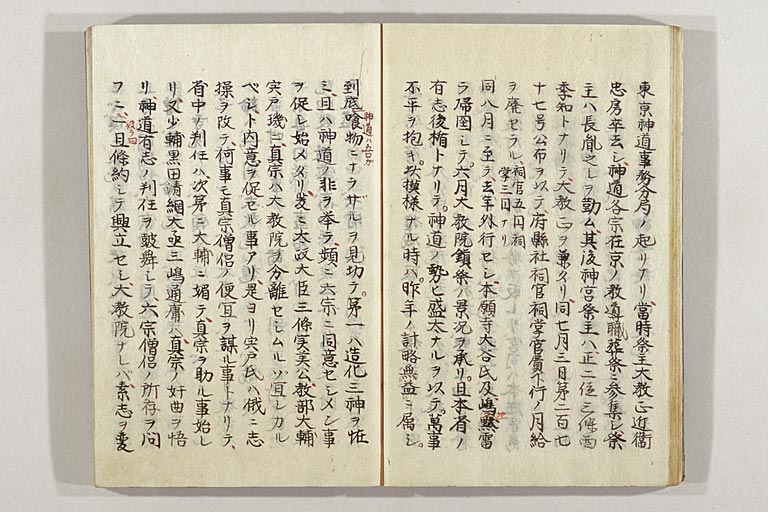 東京神道事務分局ノ起リナリ、當時祭主大教正近衞
忠房卒去シ、神道各宗在京ノ教導職葬祭ニ参集シ、祭
主ハ長胤之レヲ勤ム、其後神宮祭主ハ正二位三條西
季知トナリテ、大教正ヲ兼タリ、同七月三日第二百七
十七号公布ヲ以テ、府縣社祠官祠掌官費下行ノ月給
ヲ廃セラル、祠官五円祠掌三円ナリ
同八月ニ至テ、去年外行セシ本願寺大谷氏及嶋地黙雷
ラ帰国シテ、六月大教院鎮祭ノ景況ヲ承リ、且本省ノ
有志後楯トナリテ、神道ノ勢ヒ盛大ナルヲ以テ、萬事
不平ヲ抱キ、以模様ナル時ハ、昨年ノ計略無益ニ属シ、
神道ハ吾カ
到底喰物ニナラザルヲ見切テ、第一ハ造化三神ヲ
ミ、且ハ神道ノ非ヲ挙テ、頻ニ六宗ニ同意セシメン事
ヲ促シ始メタリ、爰ニ太政大臣三條実美公教部大輔
宍戸璣ニ、真宗ハ大教院ヲ分離セシムルゾ宜シカル
ベシト内意ヲ促セル事アリ、是ヨリ宍戸氏ハ俄ニ志
操ヲ改テ、何事モ真宗僧侶ノ便宜ヲ謀ル事トナリテ、
省中ノ判任ハ次第ニ大輔ニ媚テ、真宗ヲ助ル事始レ
リ、又少輔黒田清綱大丞三嶋通庸ハ真宗ノ奸曲ヲ悟
リ、神道有志ノ判任ヲ鼓舞シテ、六宗僧侶ノ所存ヲ問
フニ、一旦條約シテ興立セシ大教院ナレバ、素志ヲ変